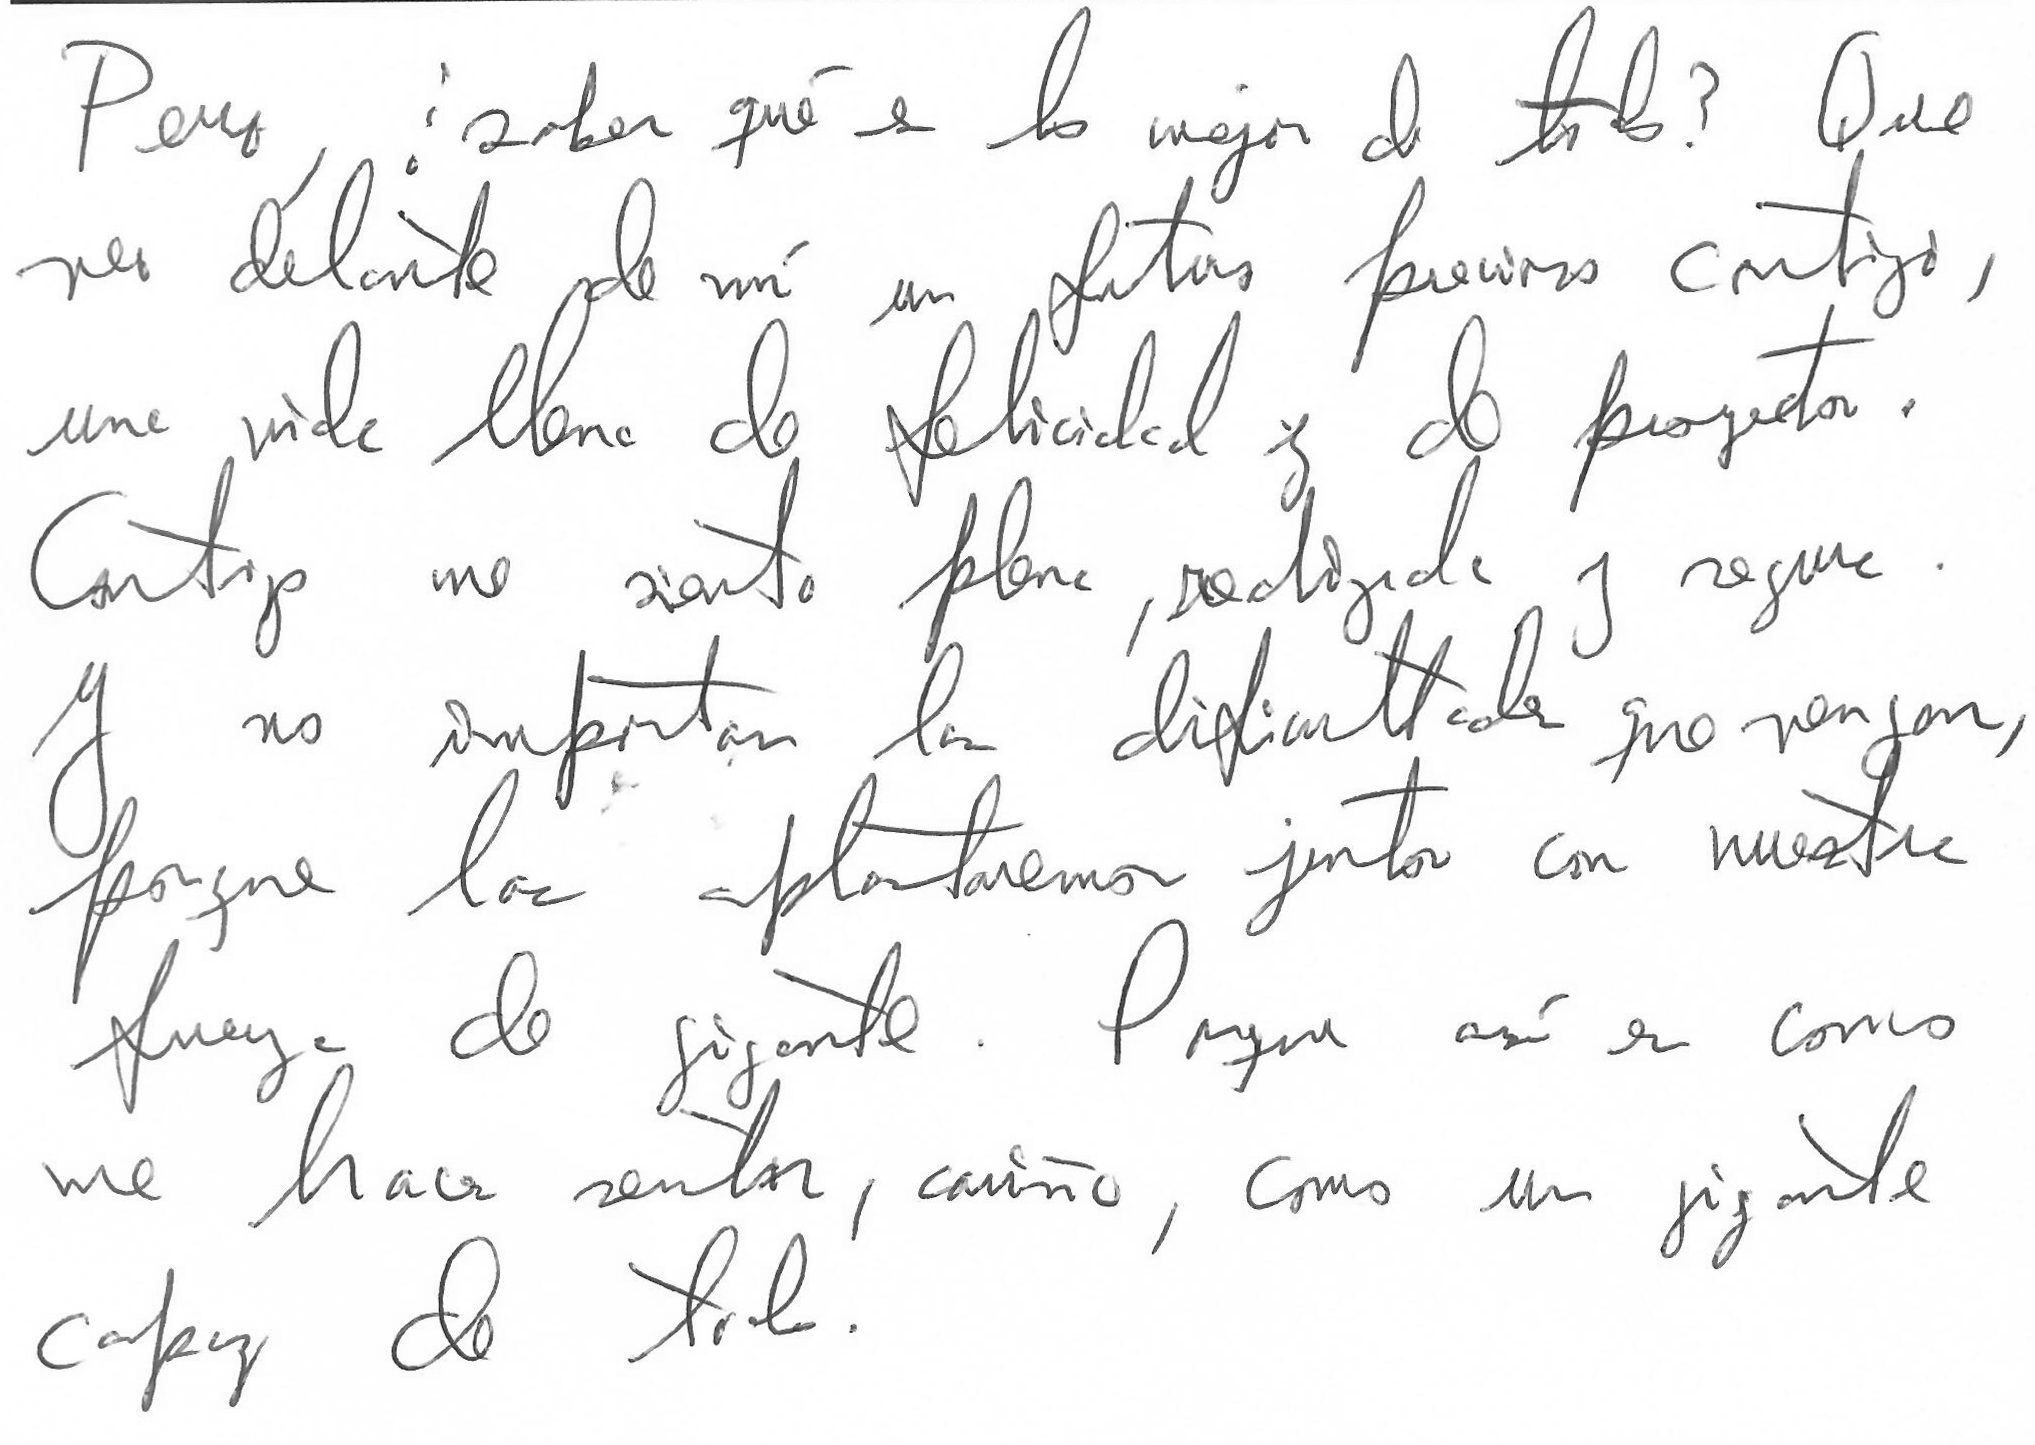 Pero, ¿sabes qué es lo mejor de todo? Que
veo delante de mí un futuro precioso contigo,
una vida llena de felicidad y de proyectos.
Contigo me siento plena, realizada y segura.
Y no importan las dificultades que vengan,
porque las aplastaremos juntos con nuestra
fuerza de gigante. Porque así es como
me haces sentir, cariño, como un gigante
capaz de todo.